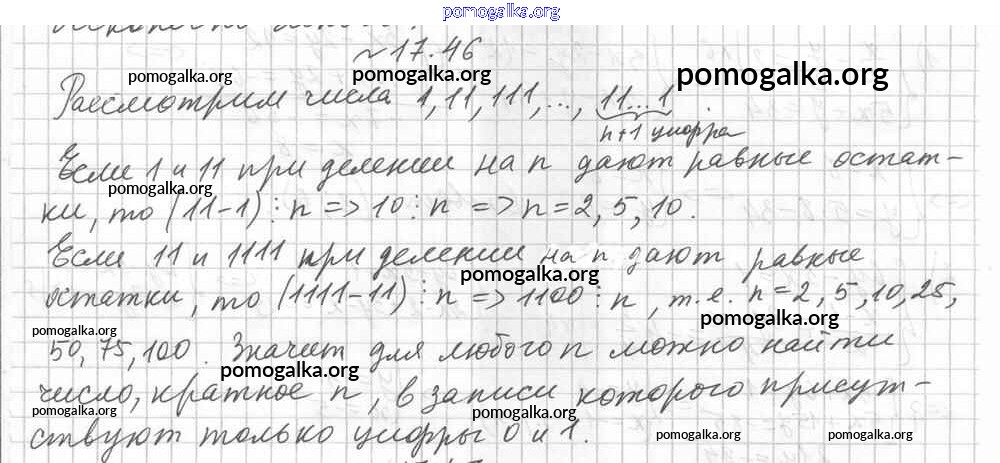 pomogalka.org
~ 17.46
pomogalka.org pomogalka.org pomogalka.org
Рассмотрим числа 1, 11, 111, ..., 11...1
n+1 цифра
Если 1 и 11 при делении на n дают равные остат-
pomogalka.org
ки, то (11-1)⋮n => 10⋮n => n=2, 5, 10.
Если 11 и 1111 при делении на n дают равные
pomogalka.org
остатки, то (1111-11)⋮n => 1100⋮n, т.е. n=2, 5, 10, 25,
pomogalka.org pomogalka.org
50, 75, 100. Значит для любого n можно найти
pomogalka.org
число, кратное n, в записи которого присут-
pomogalka.org pomogalka.org
ствуют только цифры 0 и 1.
pomogalka.org pomogalka.org